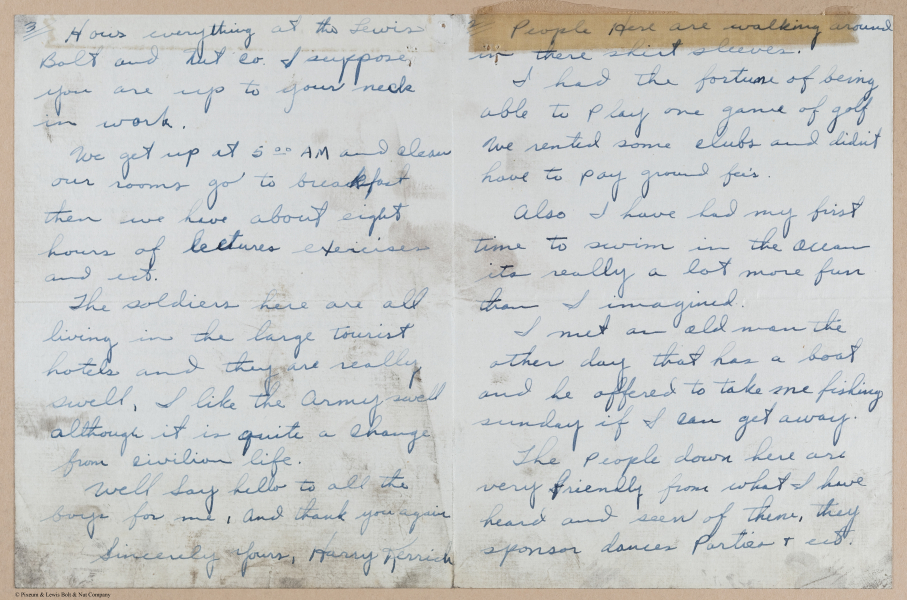 3
Hows everything at the Lewis
Bolt and Nut Co. I suppose,
you are up to your neck
in work.
We get up at 5 00 AM and clean
our rooms go to breakfast
then we have about eight
hours of lectures exercises
and ect.
The soldiers here are all
living in the large tourist
hotels and they are really
swell, I like the Army swell
although it is quite a change
from civilion life.
Well Say hello to all the
boys for me, and thank you again
Sincerely Yours, Harry Kerrick
2
People Here are walking around
in there shirt sleeves.
I had the fortune of being
able to play one game of golf
We rented some clubs and didn't
have to pay ground feis.
Also I have had my first
time to swim in the ocean
its really a lot more fun
than I imagined.
I met an old man the
other day that has a boat
and he offered to take me fishing
sunday if I can get away.
The People down here are
very friendly from what I have
heard and seen of them, they
sponsor dances Parties + ect.
© Pixeum & Lewis Bolt & Nut Company